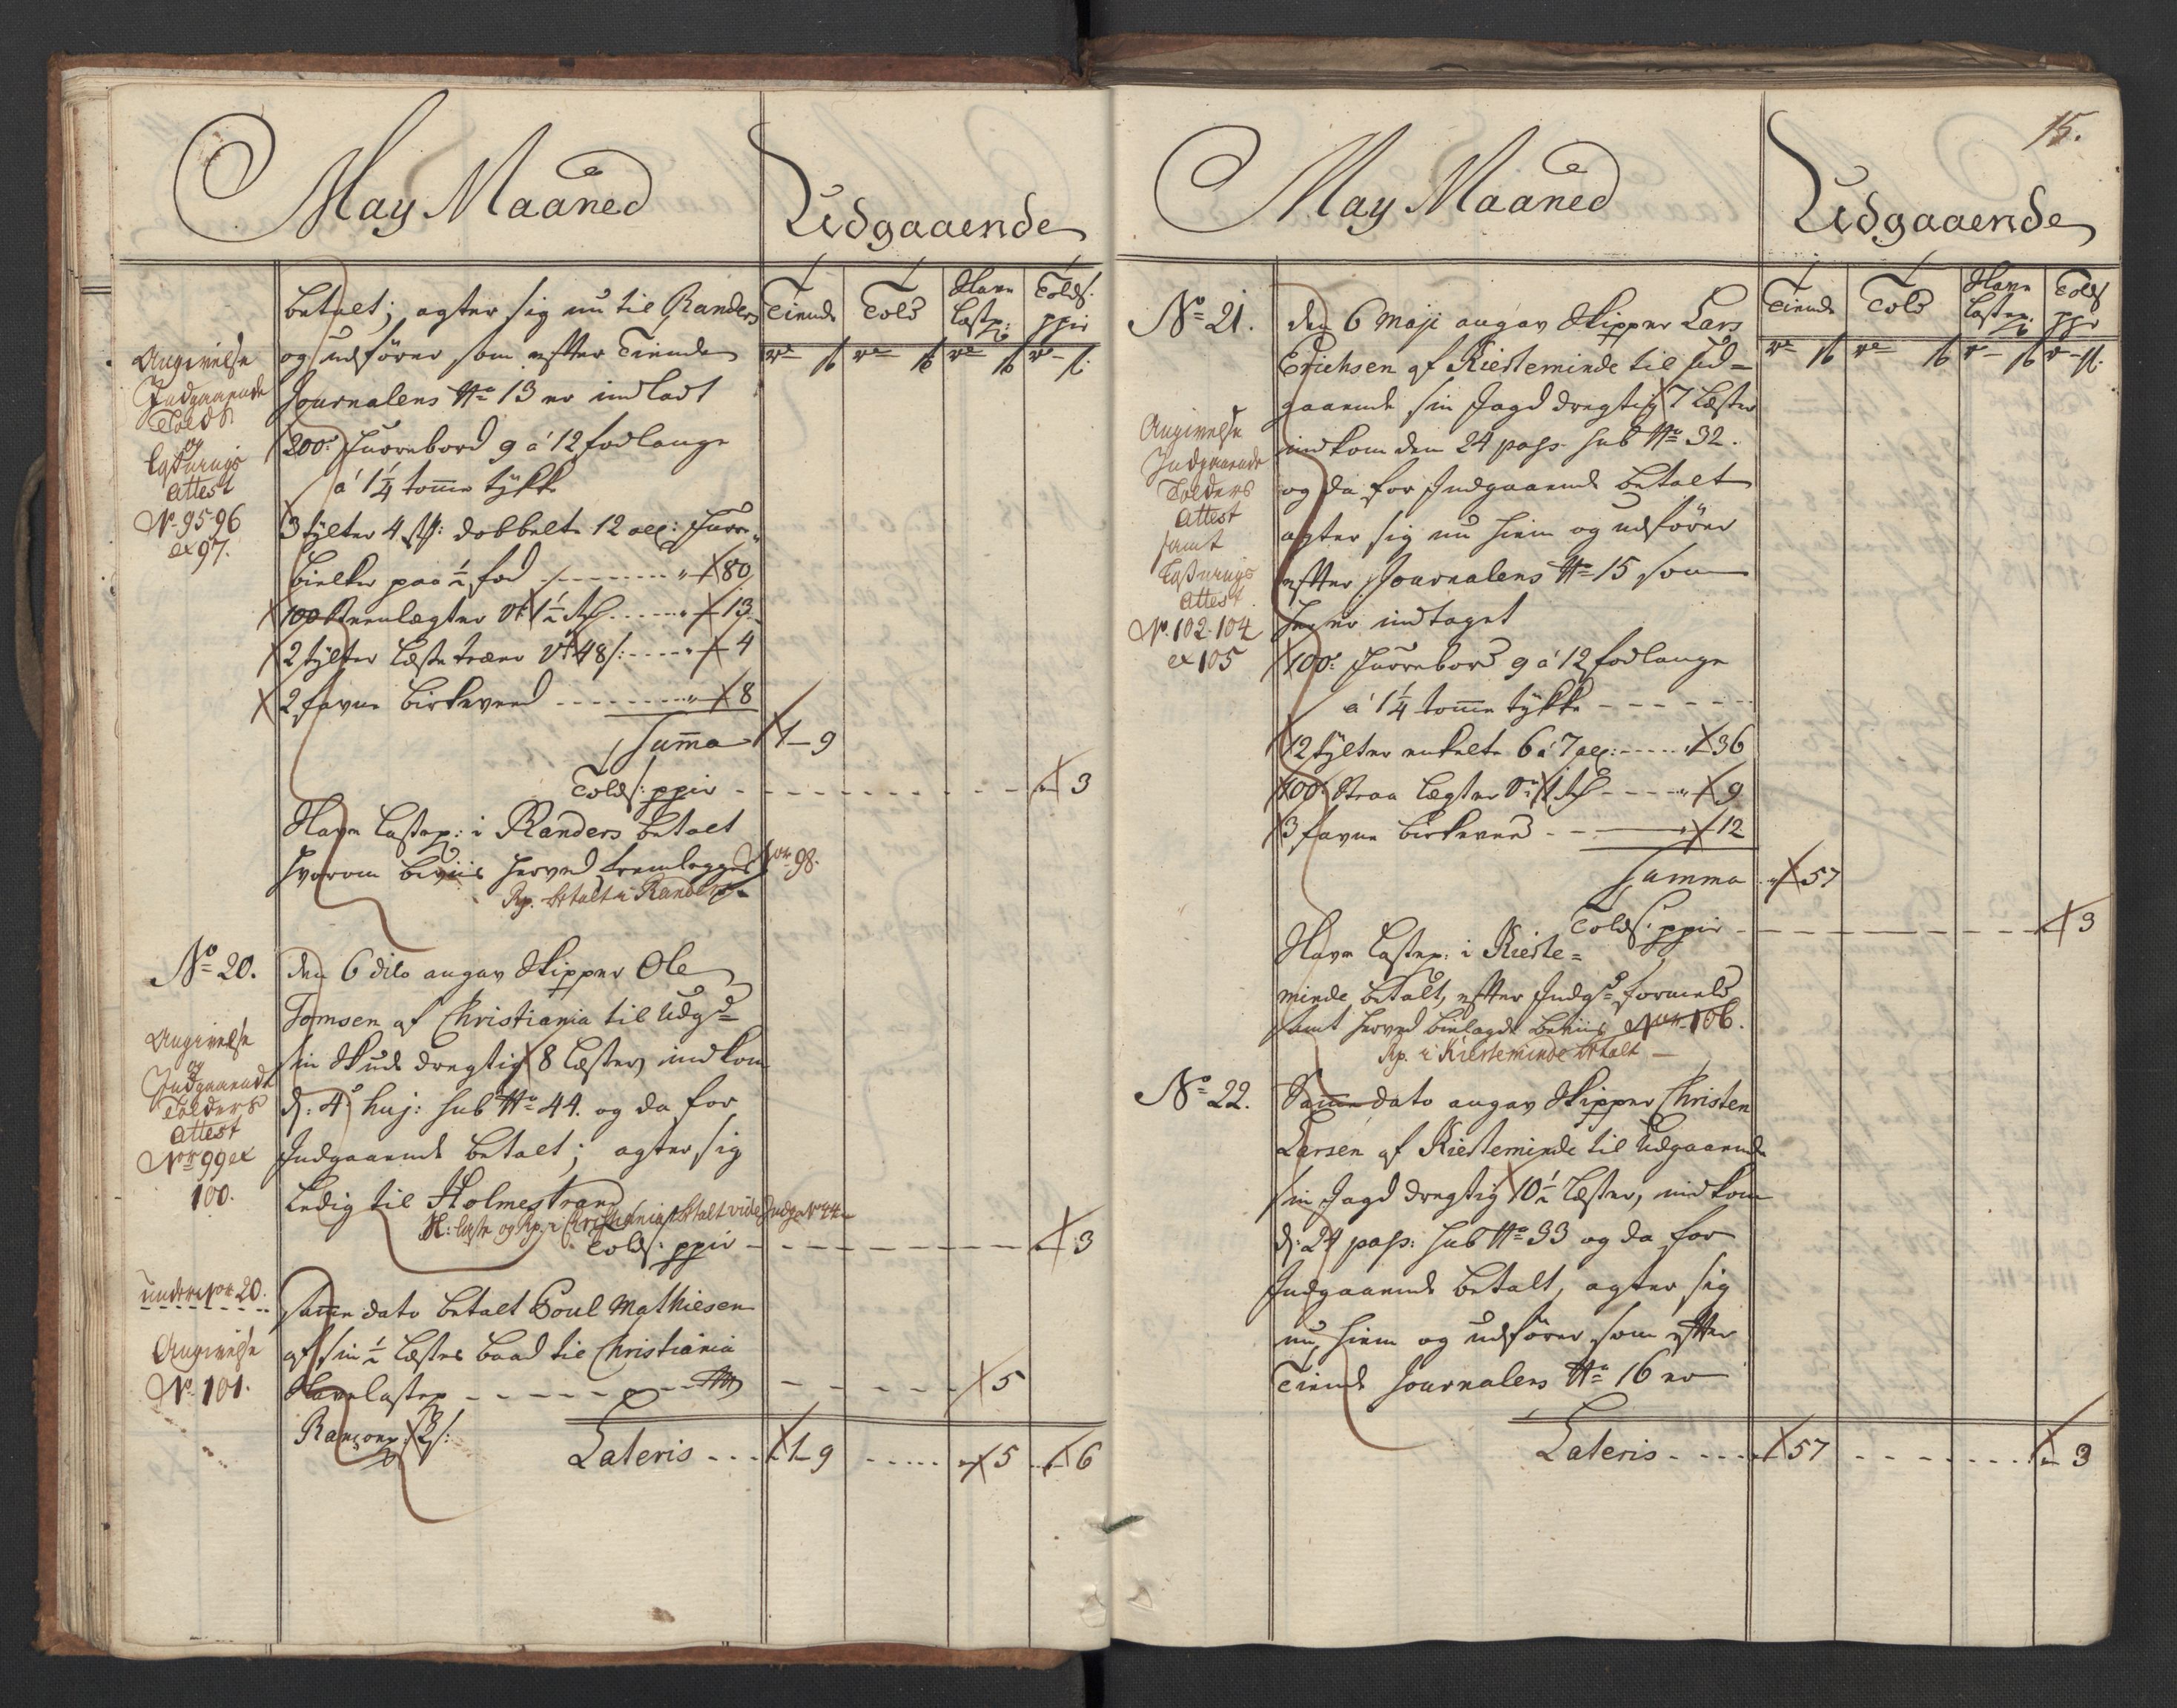 May Maaned
Udgaaende
Tiende Told Havn Lastep: Tolds: ppir
rd ß rd ß rd ß rd ß
betalt; agter sig nu til Randers
og udfører som effter Tiende
Journalens No 13 er indladt
200: Furrebord 9 à 12 fod lange
à 1 1/4 tomme tykke
3 tylter 4 st: dobbelte 12 all: Furre
bielker paa 1/2 fod - - - 80
100 Steenlægter v: 1 1/2 - - - 13
2 tylter Læste træer v: 48 ß: - - - 4
2 favne birkeved - - - 8
Summa 1 - 9
Tolds: ppir - - - 3
Havne Lastep: i Randers betalt
hvorom beviis herved fremlegges No 98.
Rp. betalt i Randers
Angivelse
Indgaaende
Told
og
Attest
No 95-96
et 97.
No 20.
den 6 dito angav Skipper Ole
Tomsen af Christiania til Udgde
sin Skude drægtig 8 Læster, indkom
d: 4 huj: sub No 44. og da for
Indgaaende betalt; agter sig
Ledig til Holmestrand
H: Læste og Rp. i Christiania betalt vide Indg. No 44
Tolds: ppir - - - 3
Angivelse
og
Indgaaende
Tolders
Attest
No 99 et
100.
under No 20.
Angivelse
No 101.
Samme dato betalt Poul Mathiesen
af sin 1/2 Læstes baad til Christiania
Havnelastep - - - 5
Rançonp: 2 ß:
Lateris - - - 1 - 9 - - - 5 - - 6
15.
May Maaned
Udgaaende
Tiende Told Havn Lastep. Tolds ppr
rd ß rd ß rd ß rd ß
No 21.
den 6 Maji angav Skipper Lars
Erichsen af Kierteminde til Ud=
gaaende sin Jagd drægtig 7 Læster
indkom den 24 pass. sub No 32.
og da for Indgaaende betalt
agter sig nu hiem og udfører
effter Journalens No 15 som
her er indtaget
100: Furrebord 9 à 12 fod lange
à 1 1/4 tomme tykke - - -
12 tylter enkelte 6 à 7 all: - - - 36
100: Straa Lægter - - - 9
3 favne birkeved - - - 12
Summa 57
Tolds: ppir - - - 3
Havne Lastep: i Kierte=
minde betalt, effter Indgde formeld
samt herved bielagde beviis No 106.
Rp. i Kierteminde betalt
Angivelse
Indgaaende
Tolders
Attest
samt
Attest
No 102-104
et 105
No 22.
Samme dato angav Skipper Christen
Larsen af Kierteminde til Udgaaende
sin Jagd drægtig 10 1/2 Læster, indkom
d: 24 pass: sub No 33 og da for
Indgaaende betalt, agter sig
nu hiem og udfører som effter
Tiende Journalens No 16 er
Lateris - - - 57 - - - 3